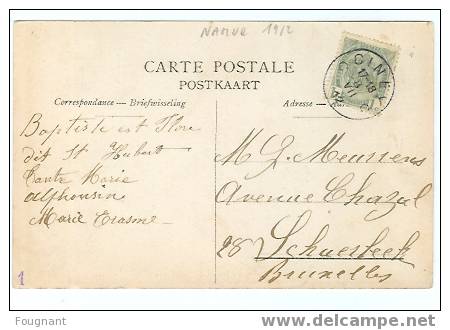 Namur 1912
CINEY
17-18
8
VII
CARTE POSTALE
POSTKAART
Correspondance — Briefwisseling
Adresse —
Baptiste est Flore
dit St Hubert
Tante Marie
Alphonsin
Marie Erasme
M G. Meussens
Avenue Chazal
28 Schaerbeek
Bruxelles
1
Fougnant
www.delcampe.net